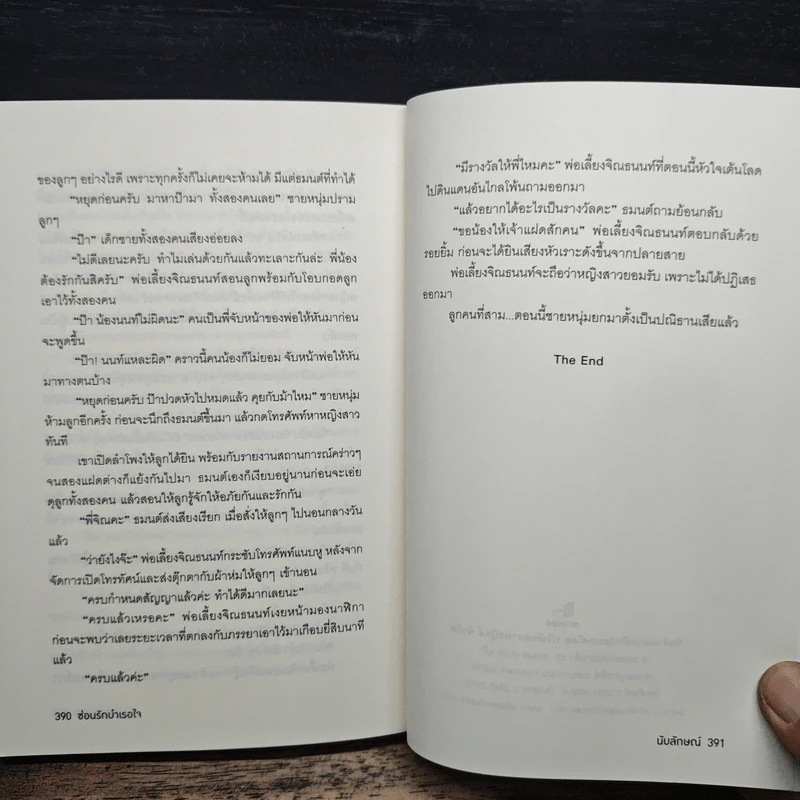 ของลูกๆ อย่างไรดี เพราะทุกครั้งก็ไม่เคยจะห้ามได้ มีแต่ธมนต์ที่ทำได้
“หยุดก่อนครับ มาหาป๊ามา ทั้งสองคนเลย” ชายหนุ่มปราม
ลูกๆ
“ป๊า” เด็กชายทั้งสองคนเสียงอ่อยลง
“ไม่ดีเลยนะครับ ทำไมเล่นด้วยกันแล้วทะเลาะกันล่ะ พี่น้อง
ต้องรักกันสิครับ” พ่อเลี้ยงจิณธนนท์สอนลูกพร้อมกับโอบกอดลูก
เอาไว้ทั้งสองคน
“ป๊า น้องนนท์ไม่ผิดนะ” คนเป็นพี่จับหน้าของพ่อให้หันมาก่อน
จะพูดขึ้น
“ป๊า! นนท์แหละผิด” คราวนี้คนน้องก็ไม่ยอม จับหน้าพ่อให้หัน
มาทางตนบ้าง
“หยุดก่อนครับ ป๊าปวดหัวไปหมดแล้ว คุยกับม้าไหม” ชายหนุ่ม
ห้ามลูกอีกครั้ง ก่อนจะนึกถึงธมนต์ขึ้นมา แล้วกดโทรศัพท์หาหญิงสาว
ทันที
เขาเปิดลำโพงให้ลูกได้ยิน พร้อมกับรายงานสถานการณ์คร่าวๆ
จนสองแฝดต่างก็แย้งกันไปมา ธมนต์เองก็เงียบอยู่นานก่อนจะเอ่ย
ดุลูกทั้งสองคน แล้วสอนให้ลูกรู้จักให้อภัยกันและรักกัน
“พี่จิณคะ” ธมนต์ส่งเสียงเรียก เมื่อสั่งให้ลูกๆ ไปนอนกลางวัน
แล้ว
“ว่ายังไงจ๊ะ” พ่อเลี้ยงจิณธนนท์กระซับโทรศัพท์แนบหู หลังจาก
จัดการเปิดโทรทัศน์และส่งตุ๊กตากับผ้าห่มให้ลูกๆ เข้านอน
“ครบกำหนดสัญญาแล้วค่ะ ทำได้ดีมากเลยนะ”
“ครบแล้วเหรอคะ” พ่อเลี้ยงจิณธนนท์เงยหน้ามองนาฬิกา
ก่อนจะพบว่าเลยระยะเวลาที่ตกลงกับภรรยาเอาไว้มาเกือบยี่สิบนาที
แล้ว
“ครบแล้วค่ะ”
390 ซ่อนรักบำเรอใจ
“มีรางวัลให้พี่ไหมคะ” พ่อเลี้ยงจิณธนนท์ที่ตอนนี้หัวใจเต้นโลด
ไปดินแดนอันไกลโพ้นถามออกมา
“แล้วอยากได้อะไรเป็นรางวัลคะ” ธมนต์ถามย้อนกลับ
“ขอน้องให้เจ้าแฝดสักคน” พ่อเลี้ยงจิณธนนท์ตอบกลับด้วย
รอยยิ้ม ก่อนจะได้ยินเสียงหัวเราะดังขึ้นจากปลายสาย
พ่อเลี้ยงจิณธนนท์จะถือว่าหญิงสาวยอมรับ เพราะไม่ได้ปฏิเสธ
ออกมา
ลูกคนที่สาม...ตอนนี้ชายหนุ่มยกมาตั้งเป็นปณิธานเสียแล้ว
The End
นับลักษณ์ 391